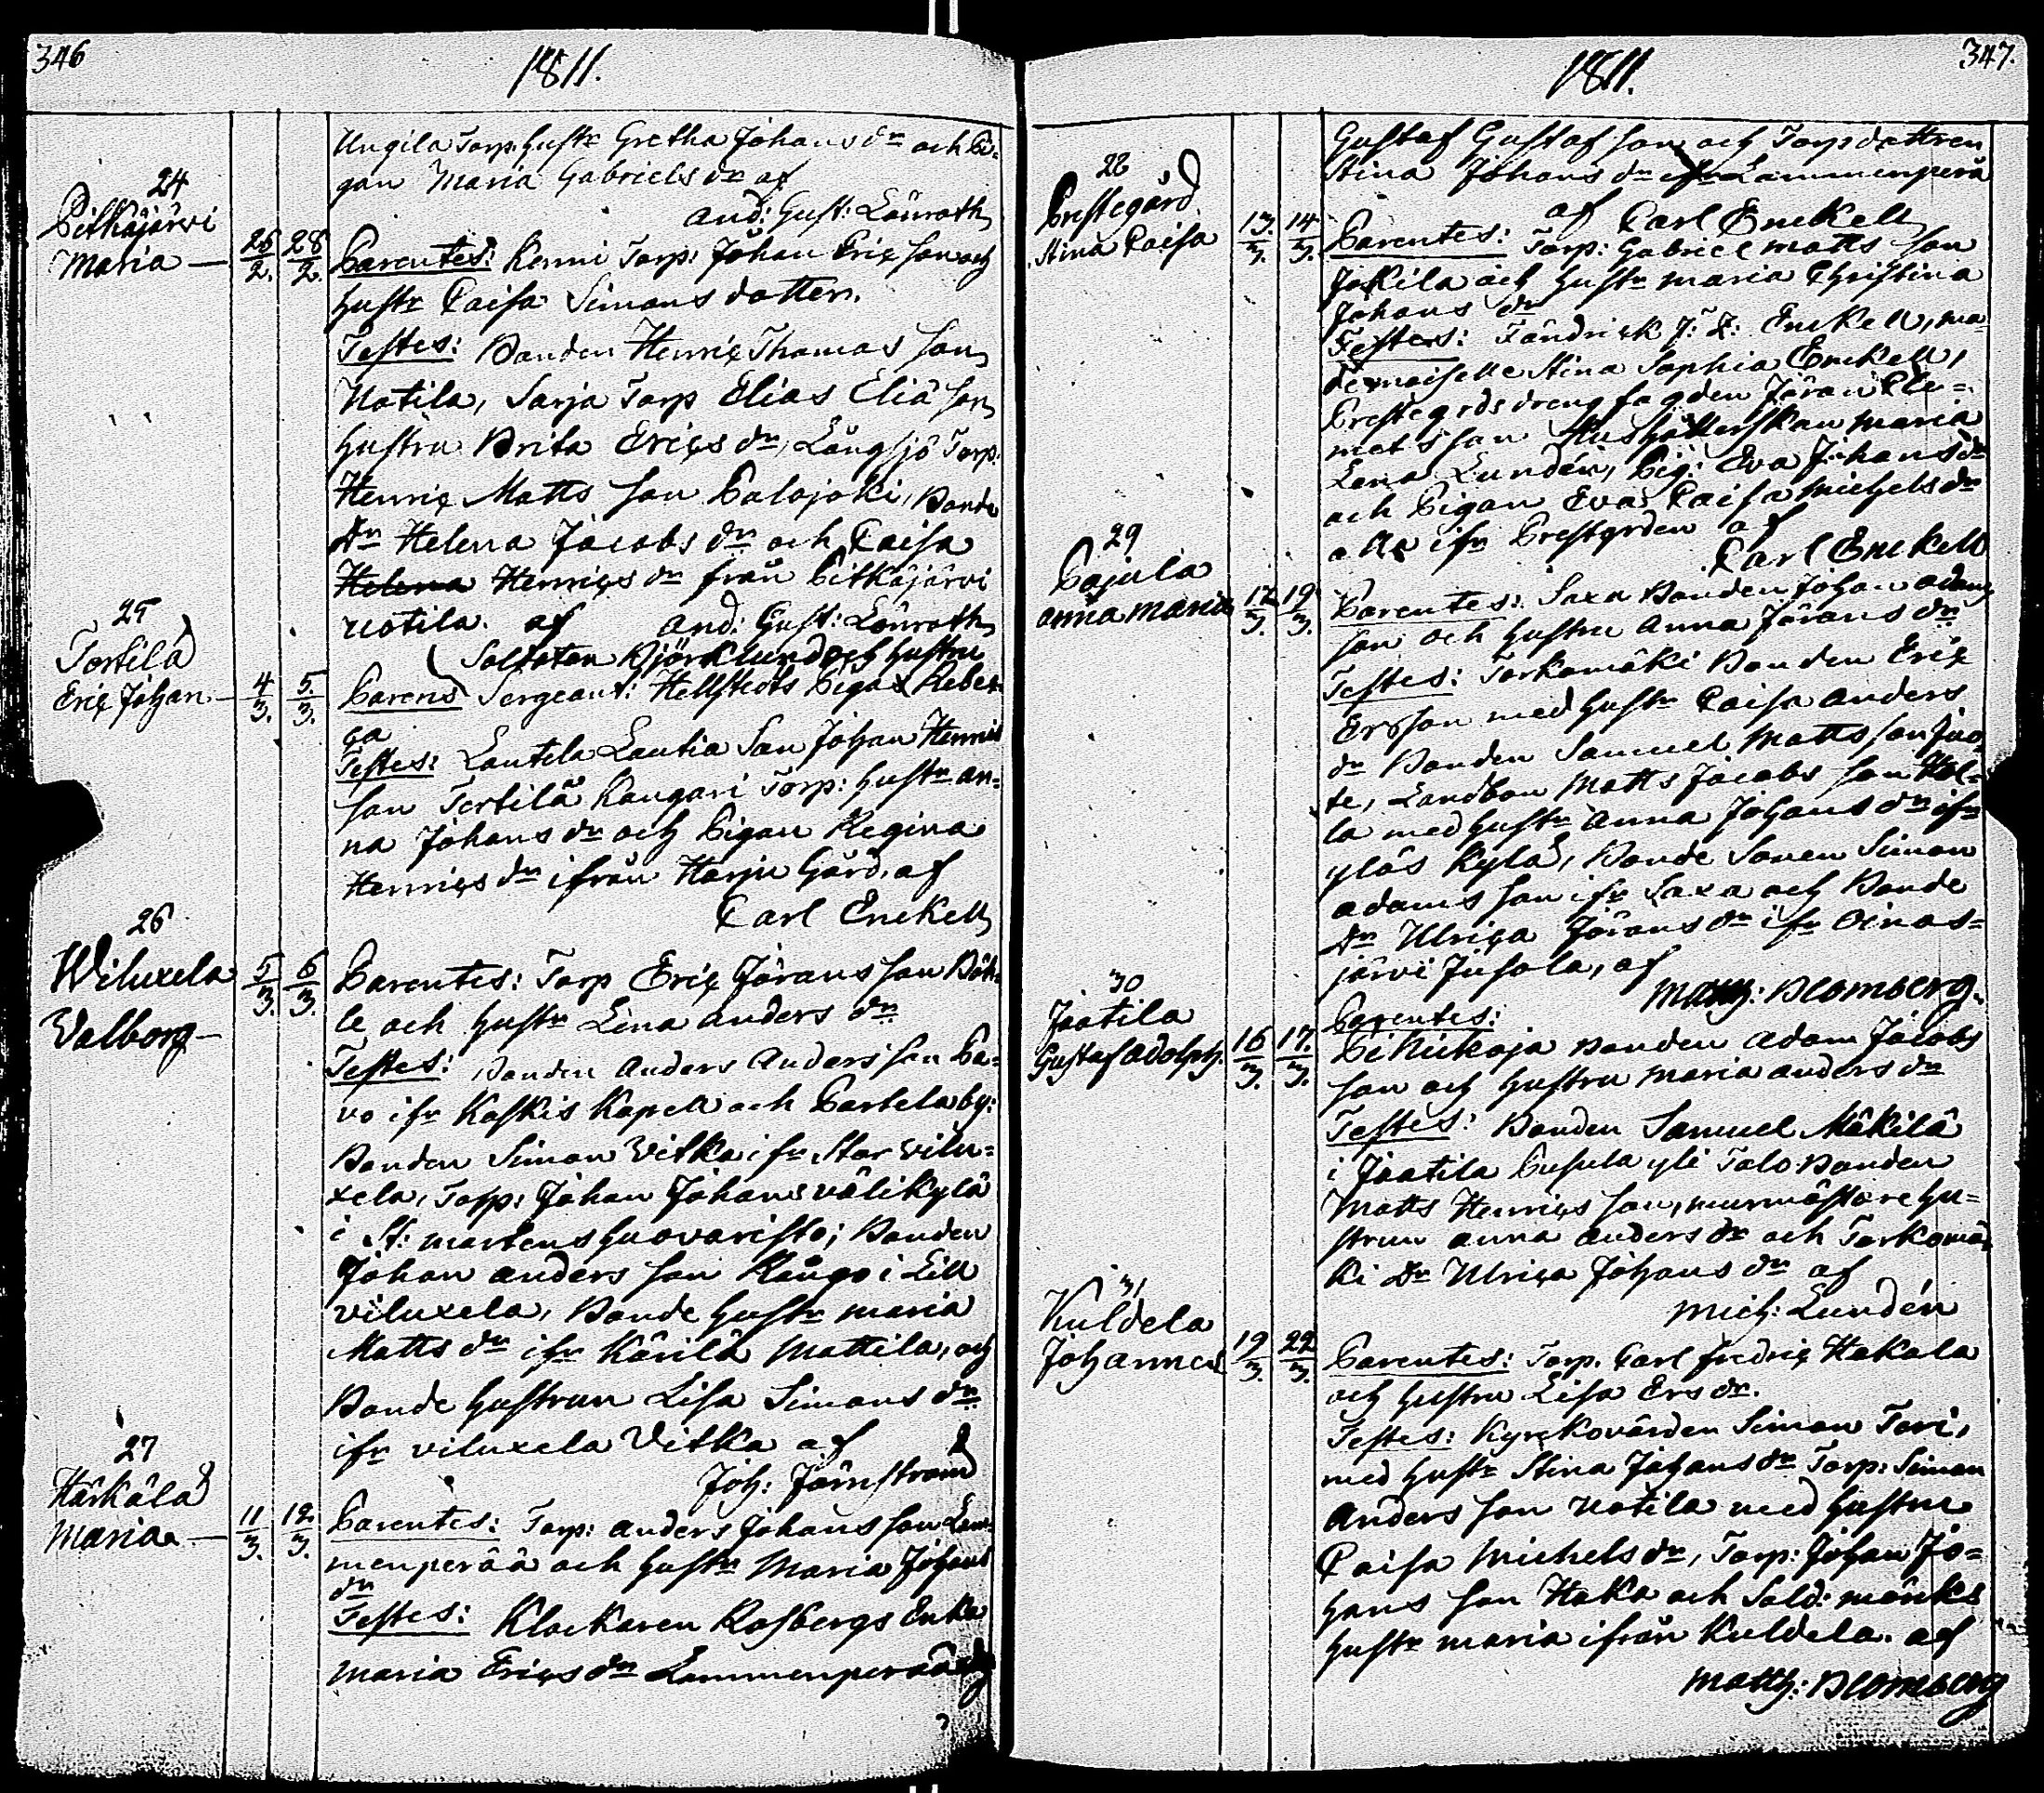 346
1811.
Ungila Torp: hustr Gretha Johans dr och Pi-
gan Maria Gabriels dr af
And: Gust: Lönroth
24
Pitkäjärvi
Maria — 26/2. 28/2.
Parentes: Kenni Torp: Johan Eric son och
hustr Caisa Simons dotter.
Testes: Bonden Henric Thomas son
Uotila, Sarja Torp Elias Eliä son
hustru Brita Erics dr, Långsjö Torp.
Henric Matts son Palojoki, Bonde
Dr Helena Jacobs dr och Caisa
Helena Henrics dr från Pitkäjärvi
Uotila. af And: Gust: Lönroth
25
Tortilä
Eric Johan — 4/3. 5/3.
Soldaten Björklund och hustru
Parens Sergeant: Hellstedts Piga Rebec-
ca
Testes: Lautela Lautia Son Johan Henric
son Tortilä Kangari Torp: hustr An-
na Johans dr och Pigan Regina
Henrics dr ifrån Harju Gård, af
Carl Enckell
26
Wiluxela
Valborg — 5/3. 6/3.
Parentes: Torp Eric Jörans son Böh-
le och hustr Lena Anders dr
Testes: Bonden Anders Anders son Pa-
vo ifr Koskis Kapell och Partela by:
Bonden Simon Vitka ifr Stor vilu-
xela, Torp: Johan Johans välikylä
i St: Martens huovaristo; Bonden
Johan Anders son Kångo i Lill
viluxela, Bonde hustr Maria
Matts dr ifr Kärilä Mattila, och
Bonde hustrun Lisa Simons dr
ifr viluxela Vitka af
Joh: Järnström
27
Härkälä
Maria — 11/3. 12/3.
Parentes: Torp: Anders Johans son Lem-
menperää och hustr Maria Johans
dr
Testes: Klockaren Rosbergs Enka
Maria Erics dr Lemmenperää
347.
1811.
Gustaf Gustaf son och Torp dottren
Stina Johans dr ifr Lammenperä
af Carl Enckell
28
Prestegård
Stina Caisa 13/3. 14/3.
Parentes: Torp: Gabriel Matts son
Jokila och hustr Maria Christina
Johans dr
Testes: Fändrick J: Z: Enckell, Ma-
demoiselle Stina Sophia Enckell,
Prestegrds dreng fogden Jöran Cle-
mets son Hushållerskan Maria
Lena Lundén, Pig: Eva Johans dr
och Pigan Eva Caisa Michels dr
alle ifr Prestgrden af
Carl Enckell
29
Pajula
Anna Maria 17/3. 19/3.
Parentes: Saxa Bonden Johan Adams
son och hustru Anna Jörans dr
Testes: Torkomäki Bonden Eric
Ersson med hustr Caisa Anders
dr Bonden Samuel Matts son Juo-
te, Landbon Matts Jacobs son Kol-
la med hustr Anna Johans dr ifr
yläs kylä, Bonde Sonen Simon
Adams son ifr Saxa och Bonde
Dr Ulrica Jörans dr ifr Oinas-
järvi Jusola, af
Matth: Blomberg.
30
Jaatila
Gustaf Adolph. 16/3. 17/3.
Parentes:
Pikickoja Bonden Adam Jacobs
son och hustru Maria Anders dr
Testes: Bonden Samuel Mäkilä
i Jaatila Pusula yli Talo Bonden
Matts Henrics son, murmästare hu-
strun Anna Anders dr och Torkomä-
ki Dr Ulrica Johans dr af
Mich: Lundén
31
Kuldela
Johannes 19/3. 22/3.
Parentes: Torp. Carl Fredric Hakala
och hustru Lisa Ers dr.
Testes: Kyrckovärden Simon Teri,
med hustr Stina Johans dr Torp: Simon
Anders son Uotila med hustru
Caisa Michels dr, Torp: Johan Jo-
hans son Haka och Sold: Mönks
hustr Maria ifrån Kuldela. af
Matth: Blomberg